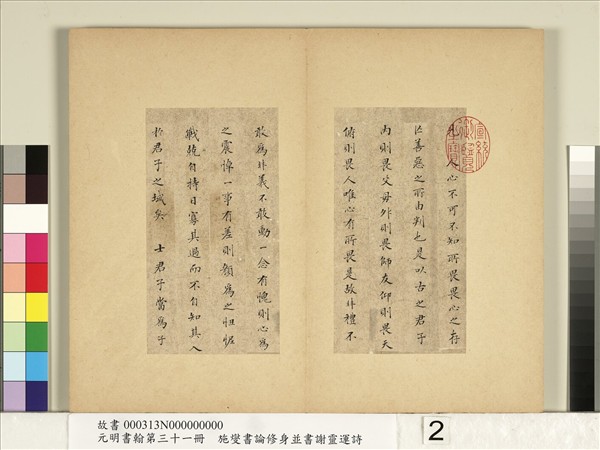 人心不可不知所畏畏心之存
亡善惡之所由判也是以古之君子
內則畏父母外則畏師友仰則畏天
俯則畏人唯心有所畏是故非禮不
敢為非義不敢動一念有愧則心為
之震悼一事有差則顏為之忸怩
戰兢自持日寡其過而不自知其入
於君子之域矣 士君子當為子
故書 000313N000000000
元明書翰第三十一冊 施燮書論修身並書謝靈運詩
2